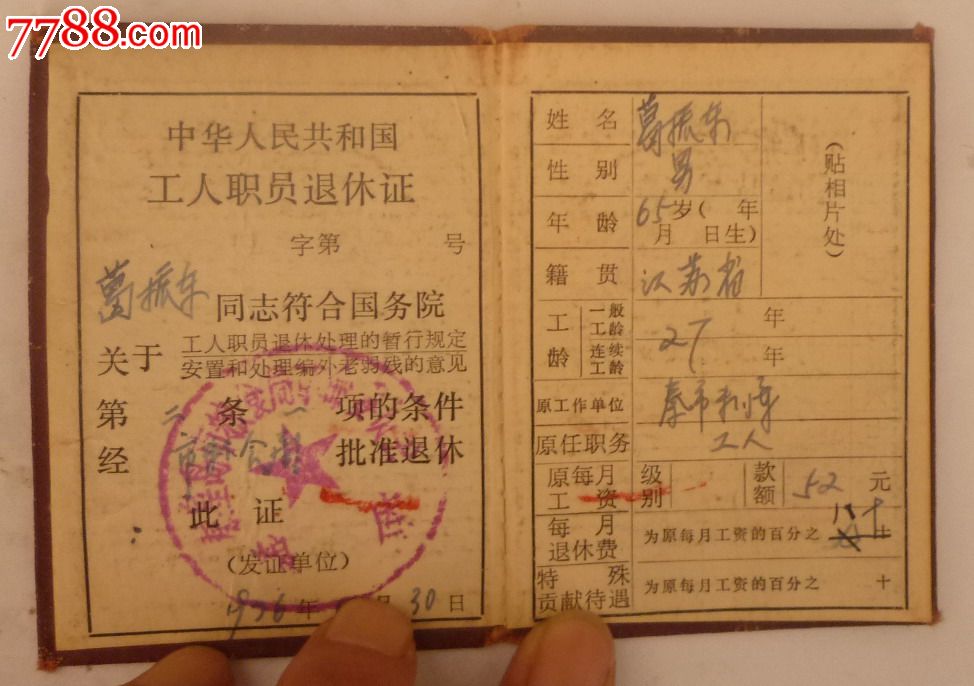 7788.com
中华人民共和国
工人职员退休证
字第 号
葛振东 同志符合国务院
关于 工人职员退休处理的暂行规定
安置和处理编外老弱残的意见
第 二 条 一 项的条件
经 批准退休
此证
(发证单位)
年 月 30 日
姓名 葛振东
性别 男
年龄 65岁( 年
月 日生)
籍贯 江苏省
工龄 一般工龄 年
27
连续工龄 年
原工作单位
原任职务 工人
原每月工资 级别 款额 52 元
每月退休费 为原每月工资的百分之 八十
特殊贡献待遇 为原每月工资的百分之 十
(贴相片处)